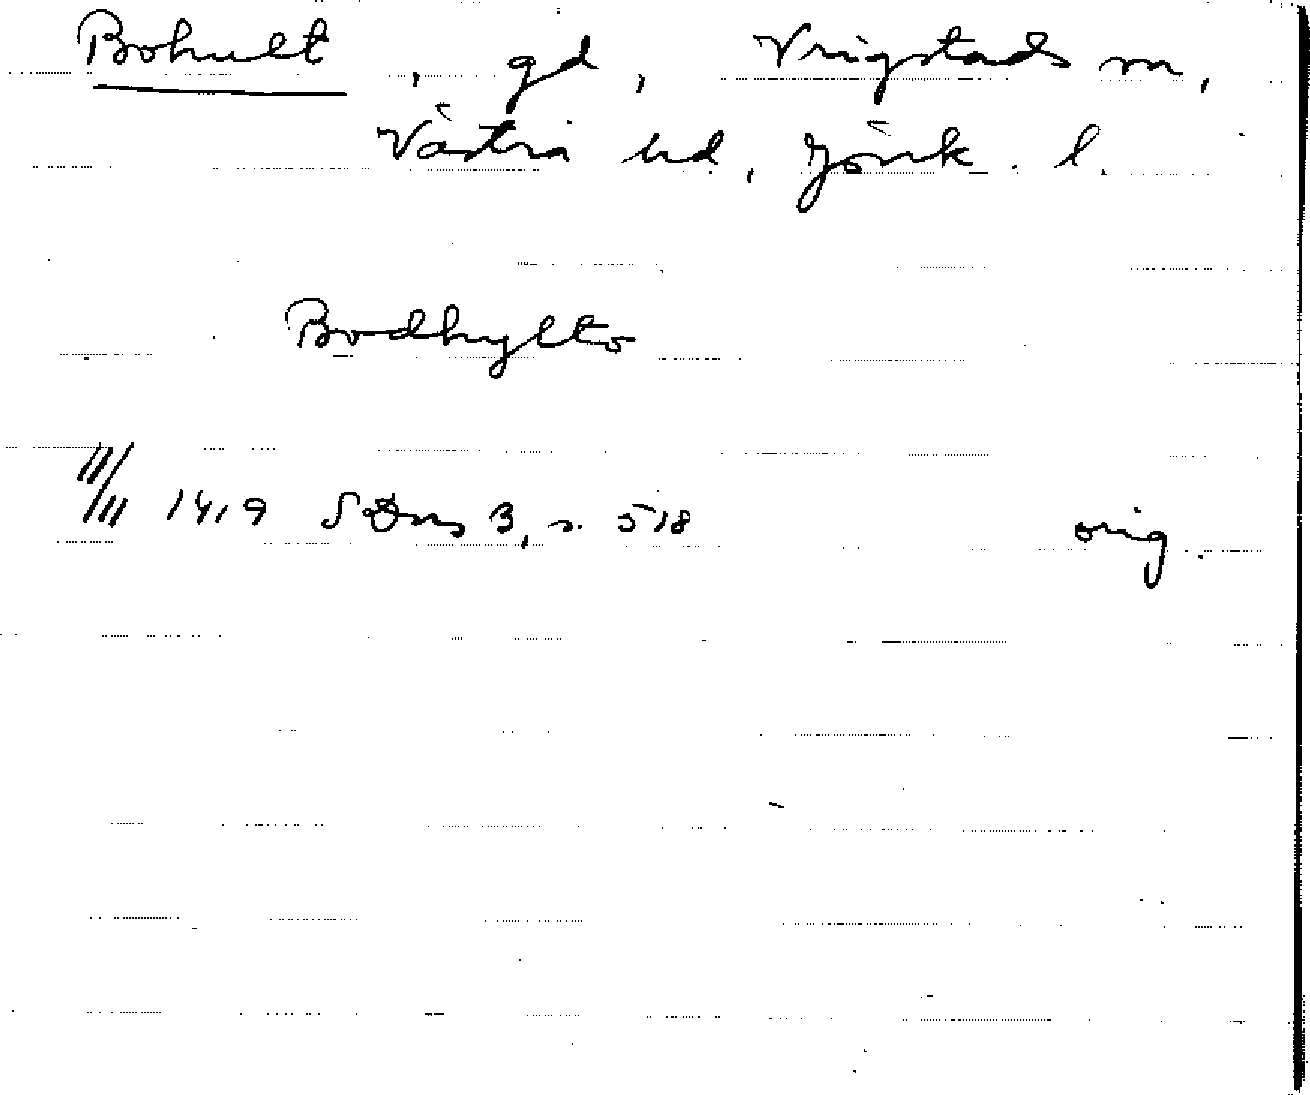 Bohult, gd, Vrigstads sn,
Västra hd, Jönk. l.
Bodhylto
11/11 1419 SDns 3, s. 518 orig.